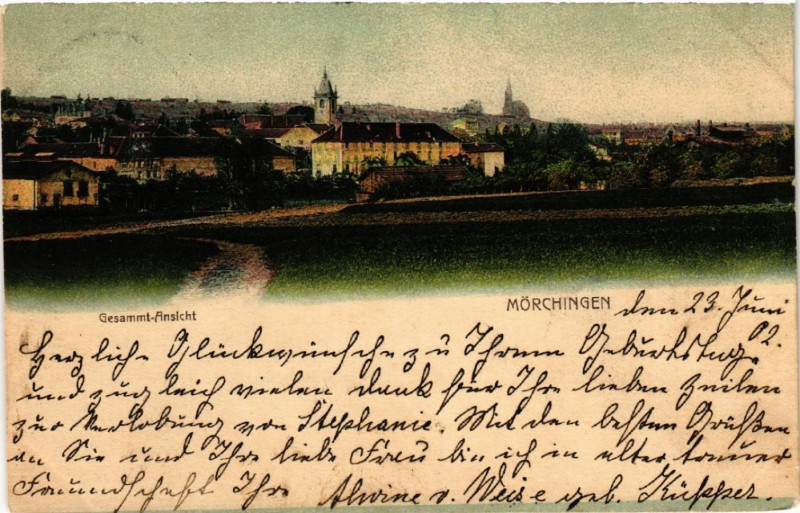 Gesammt-Ansicht
MÖRCHINGEN
den 23. Juni 02.
Herzliche Glückwünsche zu Ihrem Geburtstag,
und zugleich vielen Dank für Ihre lieben Zeilen
zur Verlobung von Stephanie. Mit den besten Grüßen
an Sie und Ihre liebe Frau bin ich in alter treuer
Freundschaft Ihre Alwine v. Weise geb. Küpper.